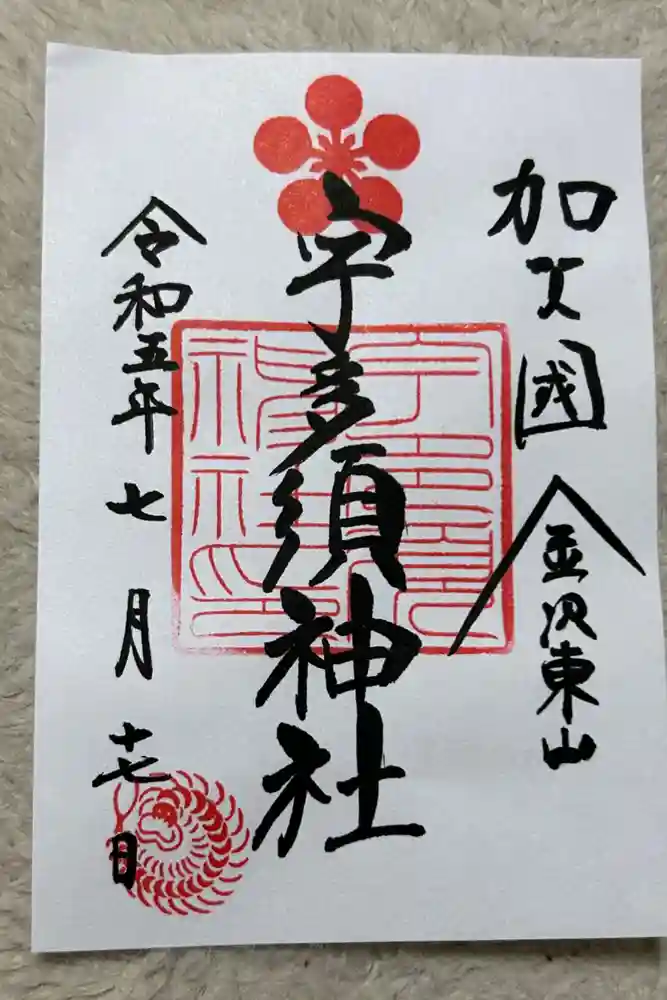 加賀國 金沢東山
宇多須神社
令和五年七月十七日